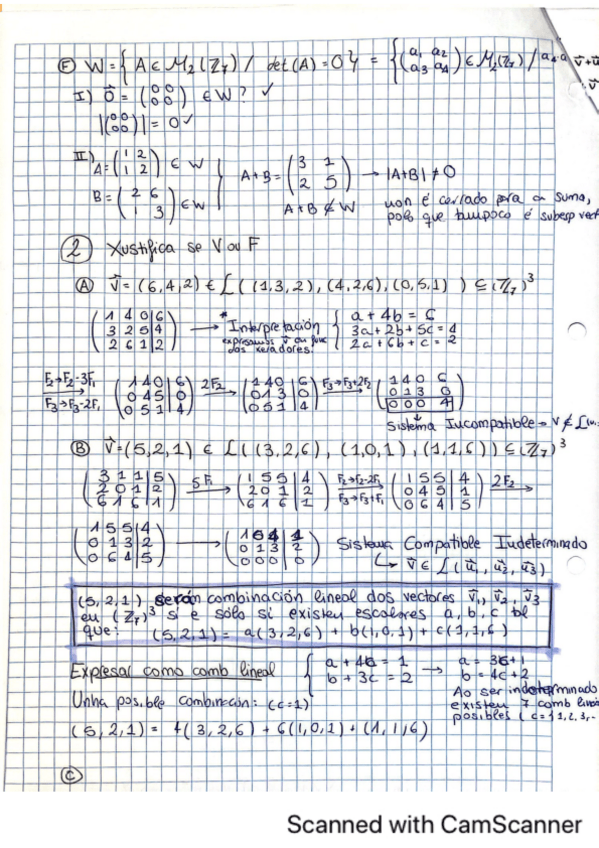 Ⓕ W = { A ∈ M₂(Z₇) / det(A) = 0 } = { (a₁ a₂
a₃ a₄) ∈ M₂(Z₇) / a₁a
I) 0⃗ = (0 0
0 0) ∈ W? ✓
|(0 0
0 0)| = 0 ✓
II) A = (1 2
1 2) ∈ W
B = (2 6
1 3) ∈ W
A+B = (3 1
2 5) → |A+B| ≠ 0
A+B ∉ W
non é cerrado para a suma,
polo que tampouco é subesp vect
② Xustifica se V ou F
Ⓐ v⃗ = (6,4,2) ∈ L( (1,3,2), (4,2,6), (0,5,1) ) ⊆ (Z₇)³
(1 4 0 | 6
3 2 5 | 4
2 6 1 | 2) → * Interpretación
expresamos v⃗ en func
dos xeradores
{ a + 4b = 6
3a + 2b + 5c = 4
2a + 6b + c = 2
F₂→F₂-3F₁
F₃→F₃-2F₁
(1 4 0 | 6
0 4 5 | 0
0 5 1 | 4)
2F₂ →
(1 4 0 | 6
0 1 3 | 0
0 5 1 | 4)
F₃→F₃+2F₂
(1 4 0 6
0 1 3 0
0 0 0 4)
Sistema Incompatible → v ∉ L(
Ⓑ v⃗ = (5,2,1) ∈ L( (3,2,6), (1,0,1), (1,1,6) ) ⊆ (Z₇)³
(3 1 1 | 5
2 0 1 | 2
6 1 6 | 1)
5F₁ →
(1 5 5 | 4
2 0 1 | 2
6 1 6 | 1)
F₂→F₂-2F₁
F₃→F₃+F₁
(1 5 5 | 4
0 4 5 | 1
0 6 4 | 5)
2F₂ →
(1 5 5 | 4
0 1 3 | 2
0 6 4 | 5) →
(1 0 4 | 1
0 1 3 | 2
0 0 0 | 0)
Sistema Compatible Indeterminado
↳ v⃗ ∈ L(u⃗₁, u⃗₂, u⃗₃)
(5,2,1) serán combinación lineal dos vectores v⃗₁, v⃗₂, v⃗₃
en (Z₇)³ si e sólo si existen escalores a, b, c tal
que: (5,2,1) = a(3,2,6) + b(1,0,1) + c(1,1,6)
Expresar como comb lineal
{ a + 4c = 1
b + 3c = 2
→ a = 3c+1
b = 4c+2
Unha posible combinación: (c=1)
Ao ser indeterminado
existen 7 comb
posibles ( c = 1, 2, 3,
(5,2,1) = 4(3,2,6) + 6(1,0,1) + (1,1,6)
Ⓒ
Scanned with CamScanner